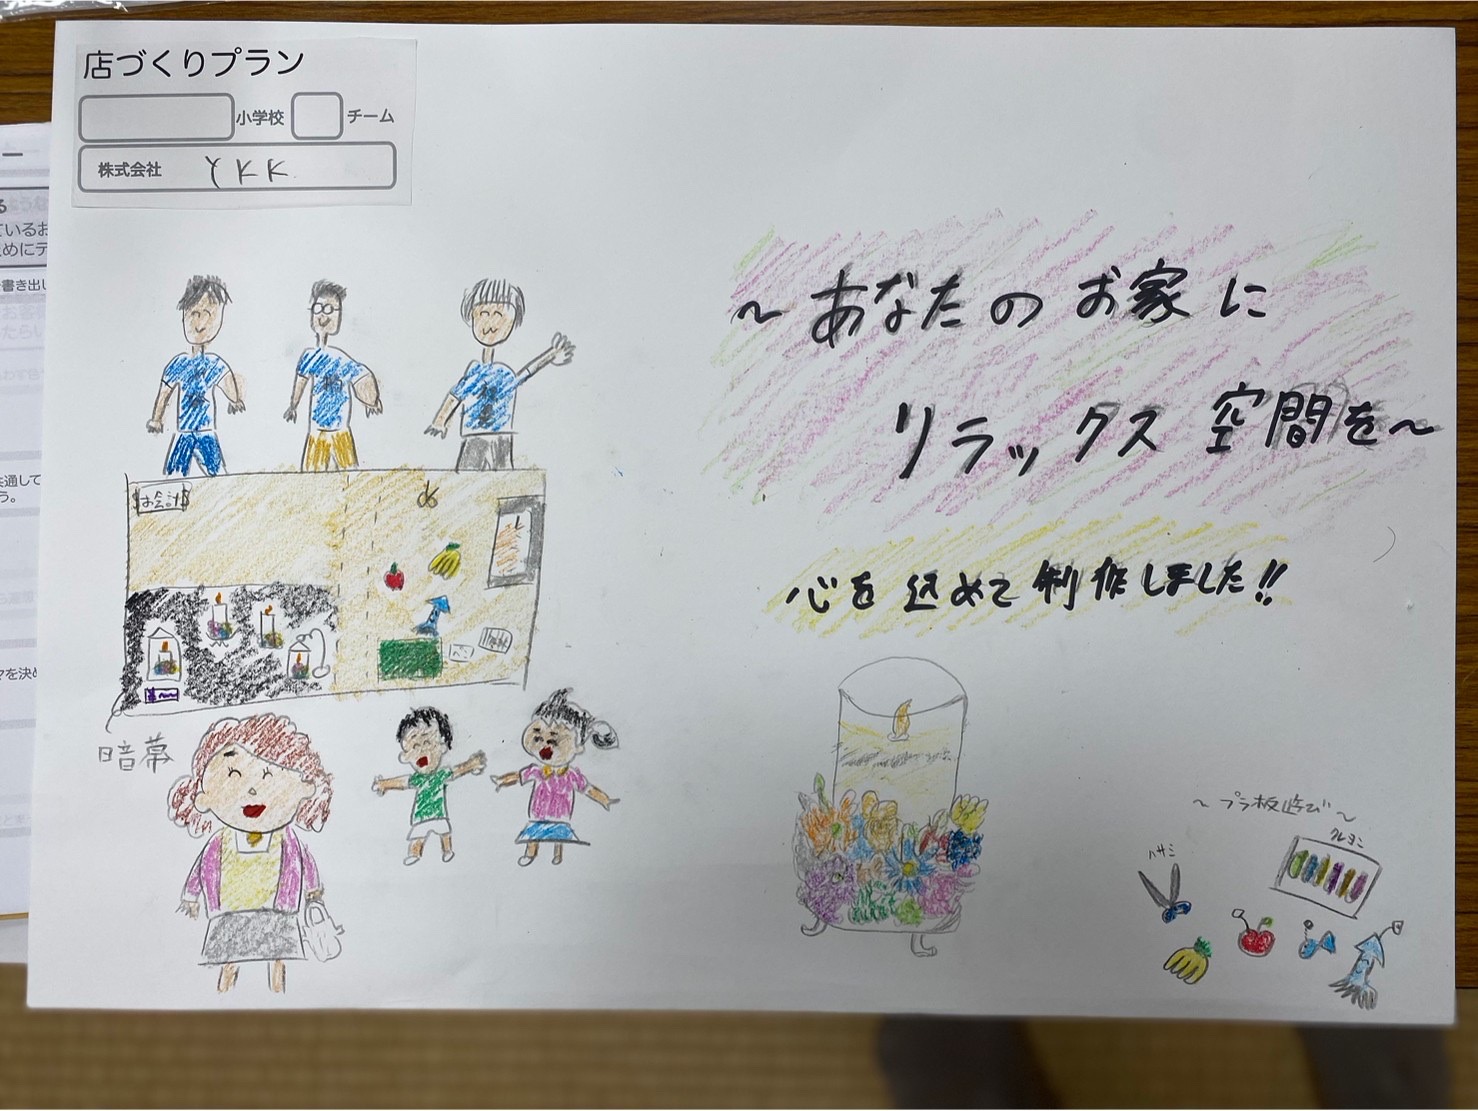 店づくりプラン
小学校 チーム
株式会社 YKK
～あなたのお家に
リラックス空間を～
心を込めて制作しました!!
お会計
暗幕
～プラ板遊び～
クレヨン
ハサミ
書き出し
共通して
う。
マを決め